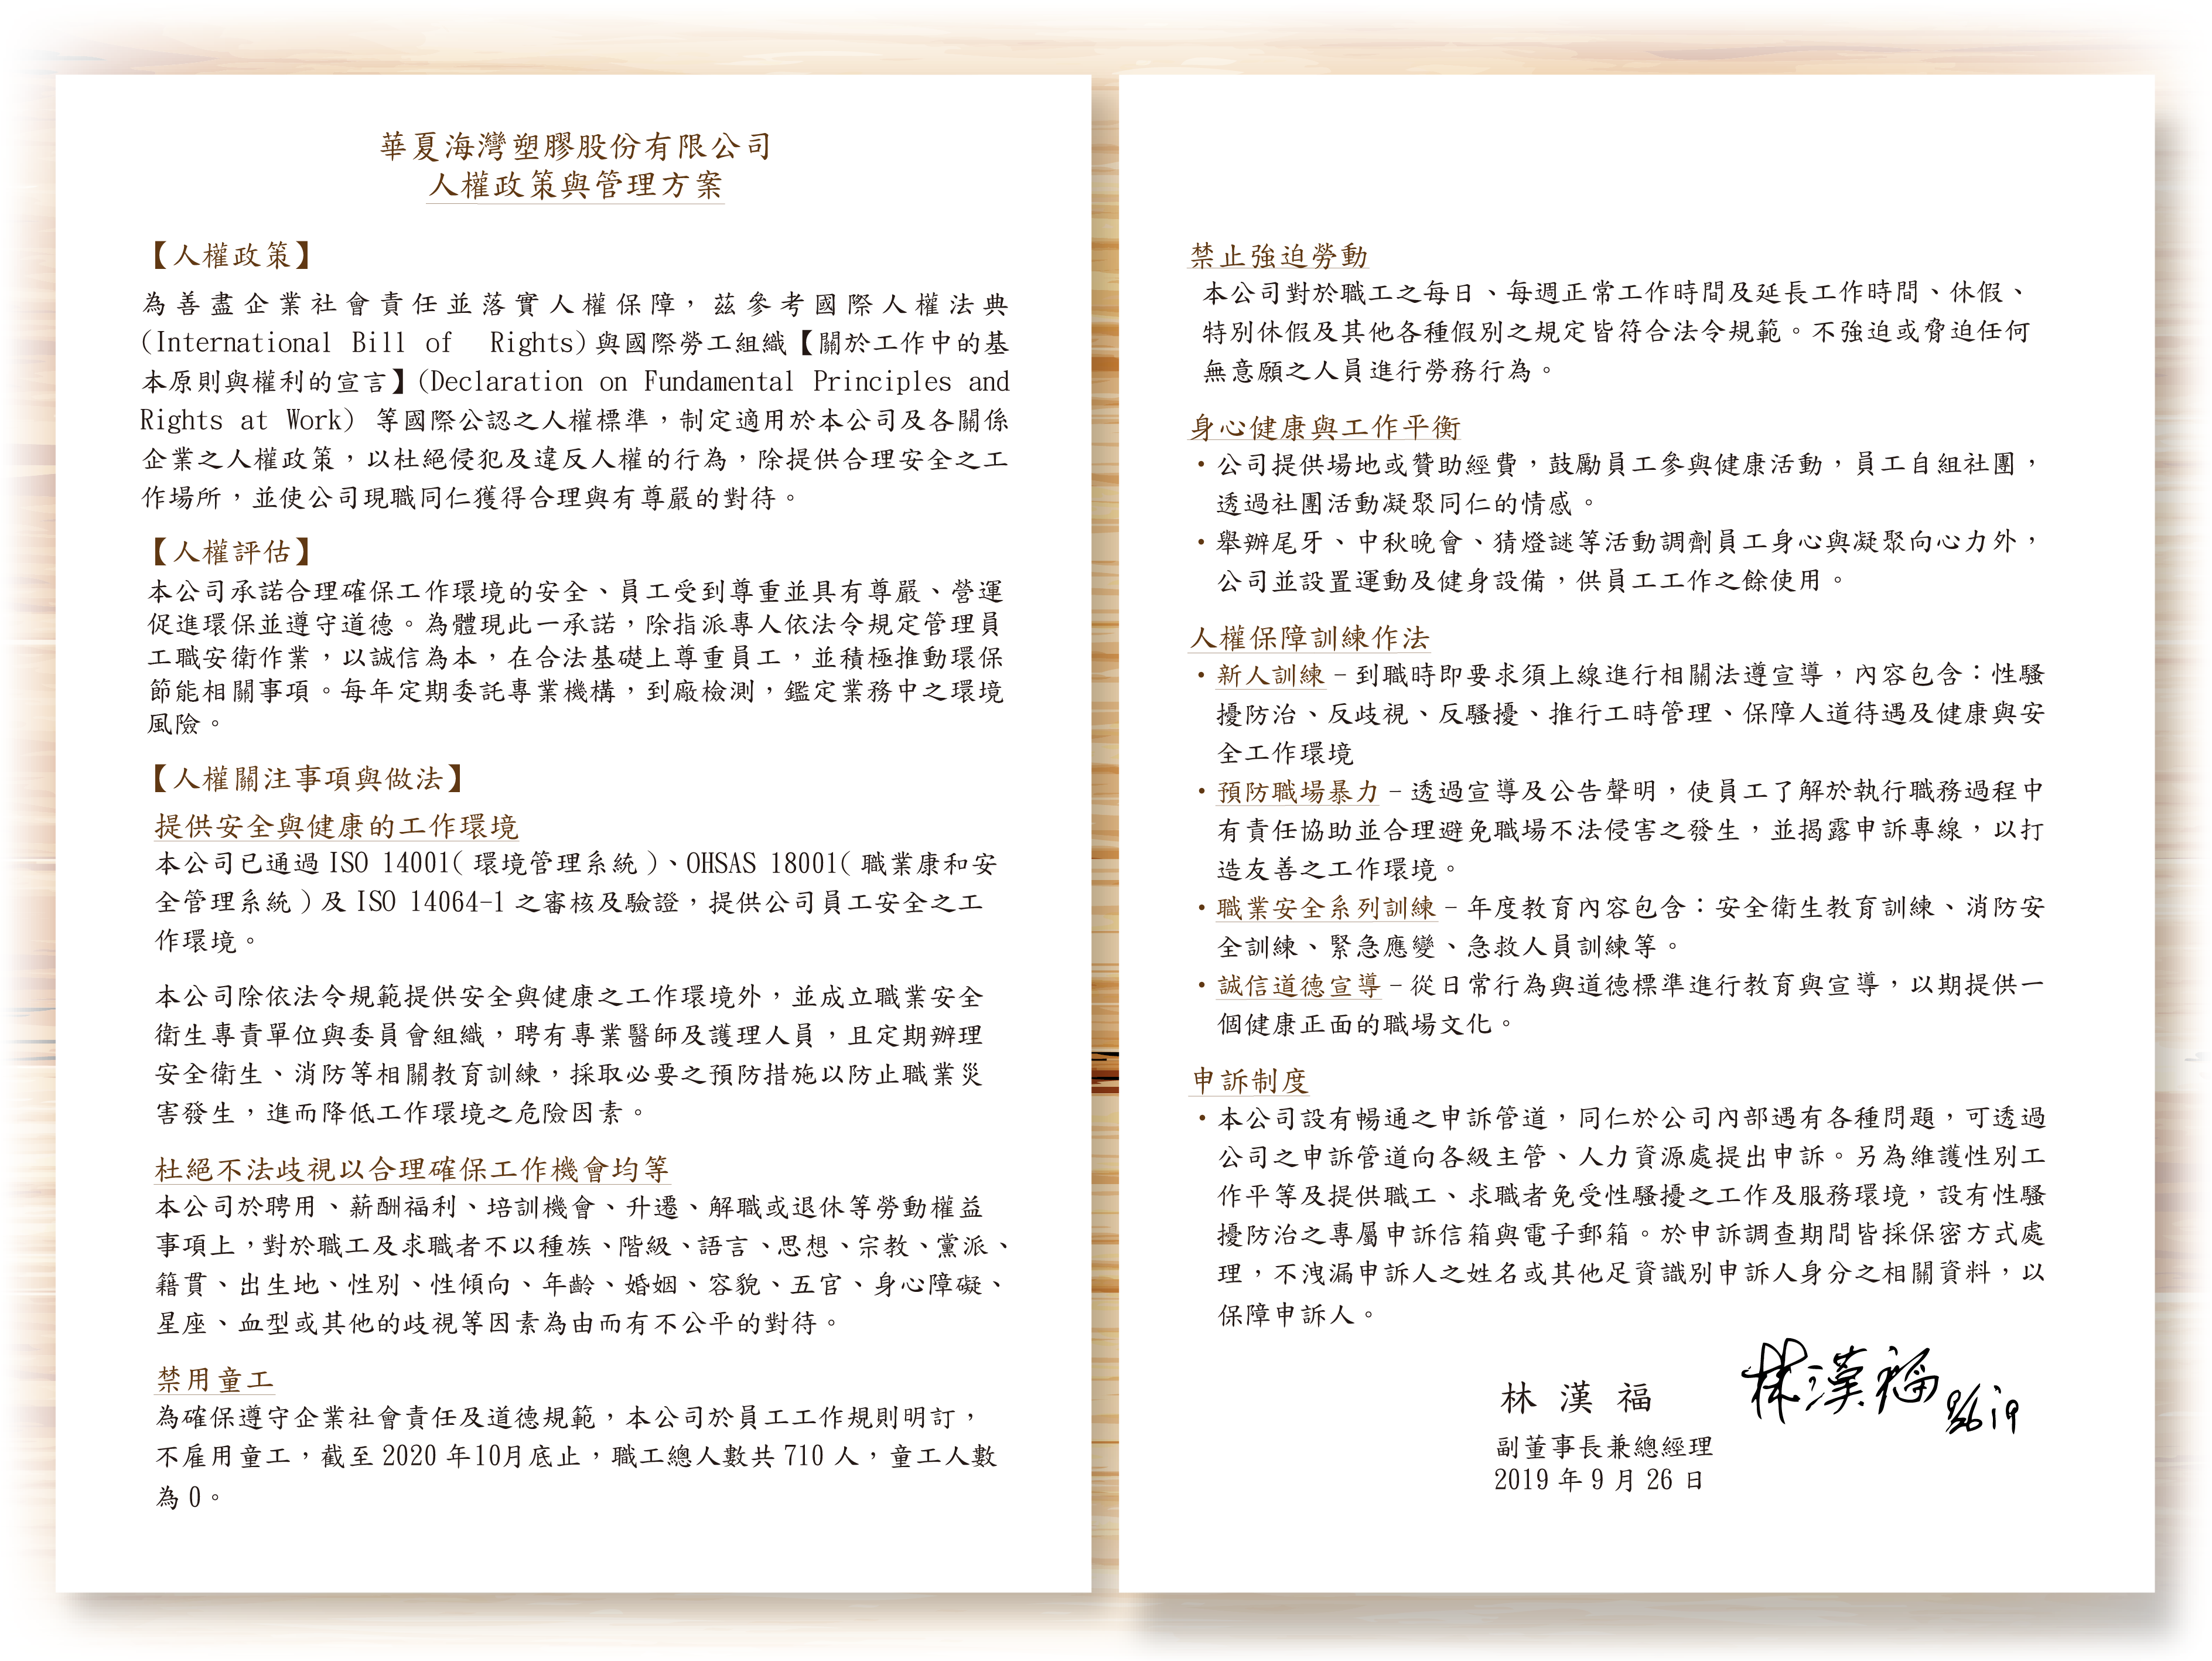 華夏海灣塑膠股份有限公司
人權政策與管理方案
【人權政策】
為善盡企業社會責任並落實人權保障，茲參考國際人權法典
(International Bill of Rights)與國際勞工組織【關於工作中的基
本原則與權利的宣言】(Declaration on Fundamental Principles and
Rights at Work) 等國際公認之人權標準，制定適用於本公司及各關係
企業之人權政策，以杜絕侵犯及違反人權的行為，除提供合理安全之工
作場所，並使公司現職同仁獲得合理與有尊嚴的對待。
【人權評估】
本公司承諾合理確保工作環境的安全、員工受到尊重並具有尊嚴、營運
促進環保並遵守道德。為體現此一承諾，除指派專人依法令規定管理員
工職安衛作業，以誠信為本，在合法基礎上尊重員工，並積極推動環保
節能相關事項。每年定期委託專業機構，到廠檢測，鑑定業務中之環境
風險。
【人權關注事項與做法】
提供安全與健康的工作環境
本公司已通過 ISO 14001( 環境管理系統 )、OHSAS 18001( 職業康和安
全管理系統 ) 及 ISO 14064-1 之審核及驗證，提供公司員工安全之工
作環境。
本公司除依法令規範提供安全與健康之工作環境外，並成立職業安全
衛生專責單位與委員會組織，聘有專業醫師及護理人員，且定期辦理
安全衛生、消防等相關教育訓練，採取必要之預防措施以防止職業災
害發生，進而降低工作環境之危險因素。
杜絕不法歧視以合理確保工作機會均等
本公司於聘用、薪酬福利、培訓機會、升遷、解職或退休等勞動權益
事項上，對於職工及求職者不以種族、階級、語言、思想、宗教、黨派、
籍貫、出生地、性別、性傾向、年齡、婚姻、容貌、五官、身心障礙、
星座、血型或其他的歧視等因素為由而有不公平的對待。
禁用童工
為確保遵守企業社會責任及道德規範，本公司於員工工作規則明訂，
不雇用童工，截至 2020 年10月底止，職工總人數共 710 人，童工人數
為 0。
禁止強迫勞動
本公司對於職工之每日、每週正常工作時間及延長工作時間、休假、
特別休假及其他各種假別之規定皆符合法令規範。不強迫或脅迫任何
無意願之人員進行勞務行為。
身心健康與工作平衡
・公司提供場地或贊助經費，鼓勵員工參與健康活動，員工自組社團，
透過社團活動凝聚同仁的情感。
・舉辦尾牙、中秋晚會、猜燈謎等活動調劑員工身心與凝聚向心力外，
公司並設置運動及健身設備，供員工工作之餘使用。
人權保障訓練作法
・新人訓練 – 到職時即要求須上線進行相關法遵宣導，內容包含：性騷
擾防治、反歧視、反騷擾、推行工時管理、保障人道待遇及健康與安
全工作環境
・預防職場暴力 – 透過宣導及公告聲明，使員工了解於執行職務過程中
有責任協助並合理避免職場不法侵害之發生，並揭露申訴專線，以打
造友善之工作環境。
・職業安全系列訓練 – 年度教育內容包含：安全衛生教育訓練、消防安
全訓練、緊急應變、急救人員訓練等。
・誠信道德宣導 – 從日常行為與道德標準進行教育與宣導，以期提供一
個健康正面的職場文化。
申訴制度
・本公司設有暢通之申訴管道，同仁於公司內部遇有各種問題，可透過
公司之申訴管道向各級主管、人力資源處提出申訴。另為維護性別工
作平等及提供職工、求職者免受性騷擾之工作及服務環境，設有性騷
擾防治之專屬申訴信箱與電子郵箱。於申訴調查期間皆採保密方式處
理，不洩漏申訴人之姓名或其他足資識別申訴人身分之相關資料，以
保障申訴人。
林漢福 9/26 '19
林 漢 福
副董事長兼總經理
2019 年 9 月 26 日